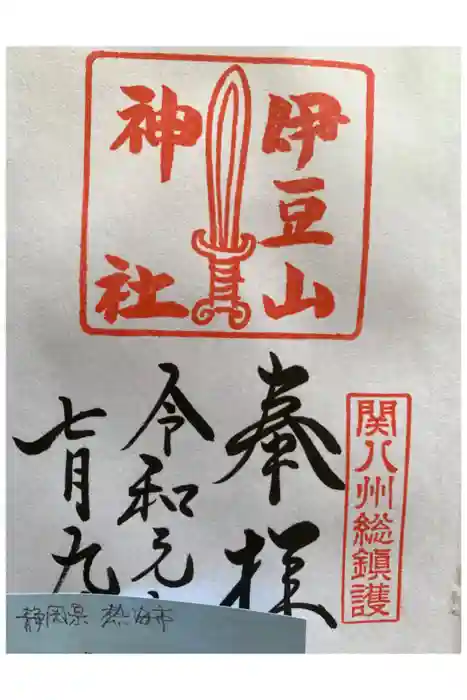 伊豆山
神社
関八州総鎮護
奉拝
令和元
七月九
静岡県 熱海市